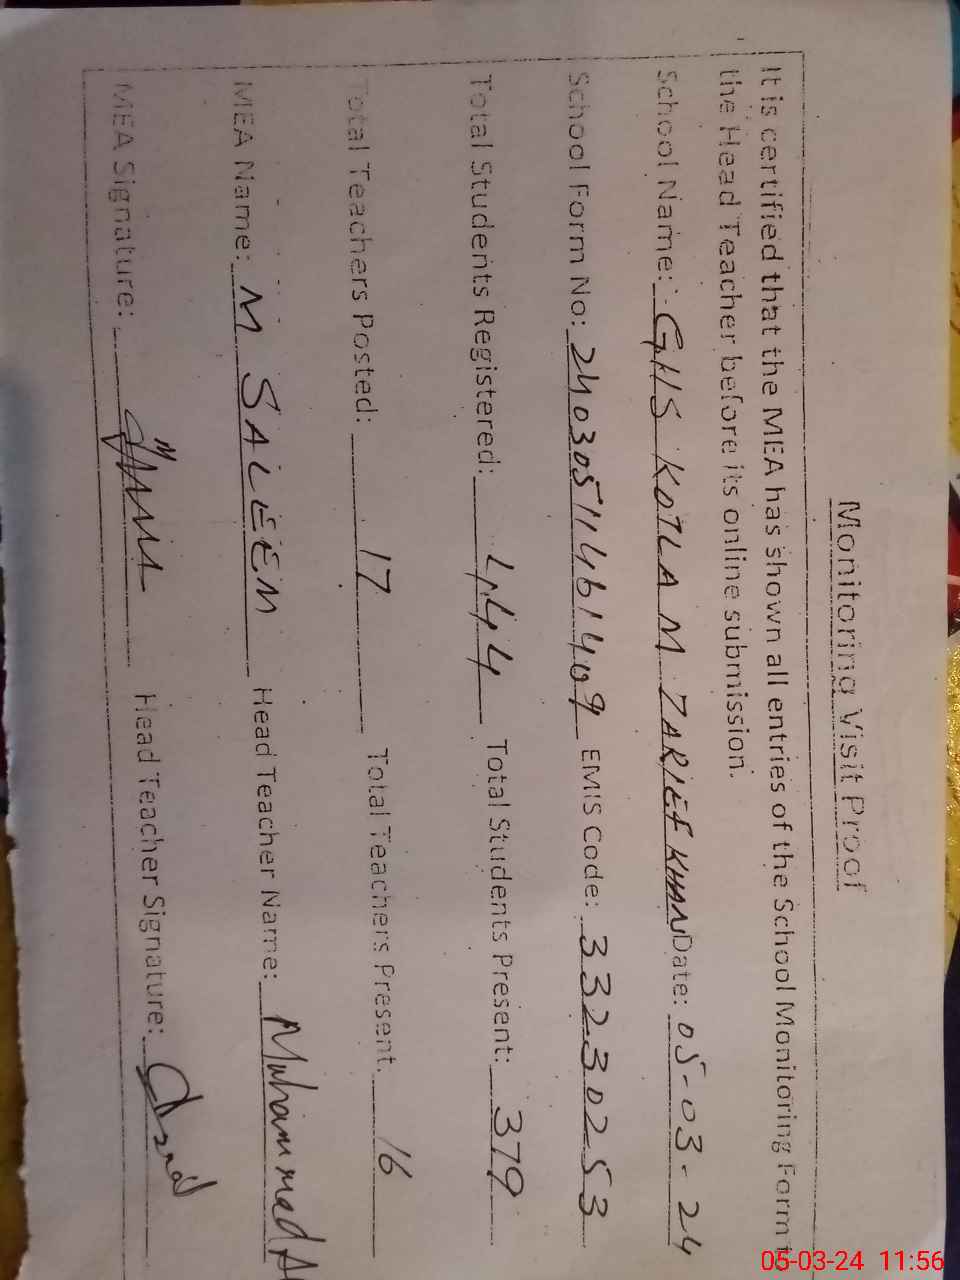 Monitoring Visit Proof
It is certified that the MEA has shown all entries of the School Monitoring Form
the Head Teacher before its online submission.
School Name: GHS KOTLA M ZARIEF KHAN Date: 05-03-24
School Form No: 24030511461409 EMIS Code: 33230253
Total Students Registered: 444 Total Students Present: 379
Total Teachers Posted: 17 Total Teachers Present. 16
MEA Name: M SALEEM Head Teacher Name: Muhammad
MEA Signature: Head Teacher Signature:
05-03-24 11:56